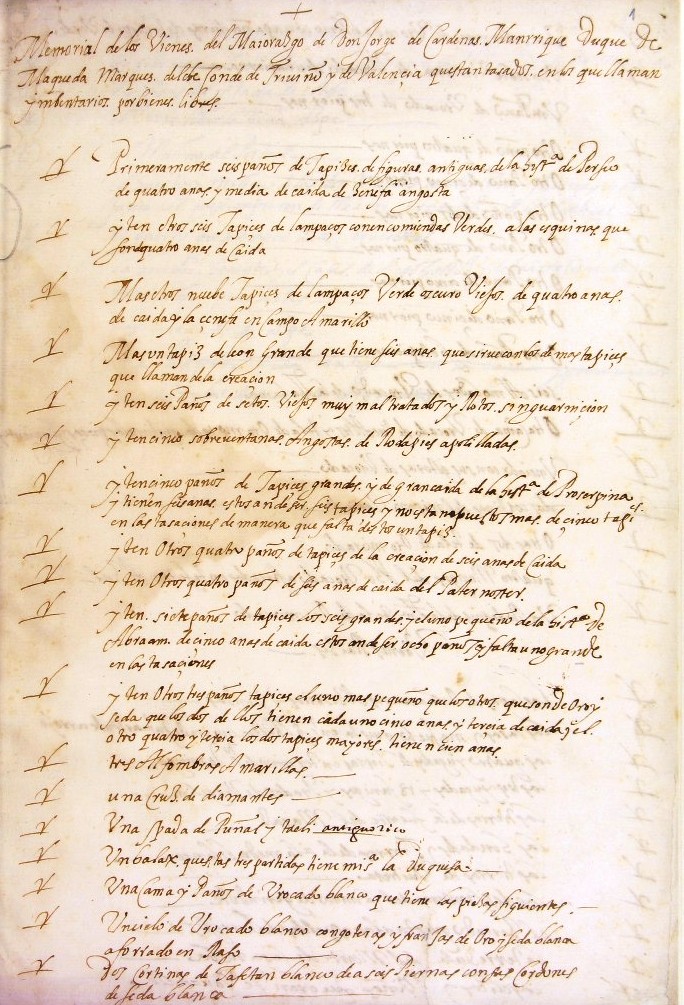 1
Memorial de los Vienes. del Maioradgo de Don Jorge de Cardenas. Manrrique Duque de
Maqueda Marques. delche Conde de Triviño y de Valençia questan tasados. en los que llaman
ynbentarios. por bienes. libres.
Primeramente seis paños de Tapizes. de figuras. antiguas, de la hist.ª de Perseo
de quatro anas, y media de caida, de Zenefa angosta
yten otros seis Tapices de lampaços con encomiendas Verdes. a las esquinas, que
son de quatro anas de Caida
Mas otros nuebe Tapices de lampaços Verde oscuro Viejos. de quatro anas.
de caida y la çenefa en Campo Amarillo
Mas un tapiz de leon Grande que tiene seis anas. que sirve con los demas tapiçes
que llaman de la creaçion
yten seis Paños de setos. Viejos muy mal tratados y Rotos. sin guarniçion
yten cinco sobreventanas. Angostas. de Rodapies apolilladas.
yten cinco paños de Tapices grandes. y de gran caida de la hist.ª de Proserpina
y tienen seis anas. estos an de ser. seis tapices y no estan puestos mas. de cinco tapi
çes
en las tasaciones de manera que falta destos un tapiz.
yten Otros quatro paños de tapices de la creaçion de seis anas de Caida
yten Otros quatro paños de seis anas de caida del Pater noster.
yten. siete paños de tapices los seis grandes, y el uno pequeño de la hist.ª de
Abraam. de cinco anas de caida. estos an de ser ocho paños y falta uno grande
en las tasaciones
yten Otros tres paños tapices el uno mas pequeño que los otros. que son de Oro y
seda que los dos dellos. tienen cada uno cinco anas y tercia de caida y el.
otro quatro y tercia los dos tapices mayores. tienen cien anas.
tres Alfombras Amarillas.
una Cruz. de diamantes
Una spada de Puñas y taeli antiguo rico
Un balax. questas tres partidas tiene mi s.ª la Duquesa
Una Cama y Paños de Brocado blanco que tiene las pieças siguientes.
Un cielo de Brocado blanco con goteras y franjas de Oro y seda blanca
aforrado en Raso
Dos Cortinas de Tafetan blanco de a seis Piernas con sus Cordones
de seda blanca